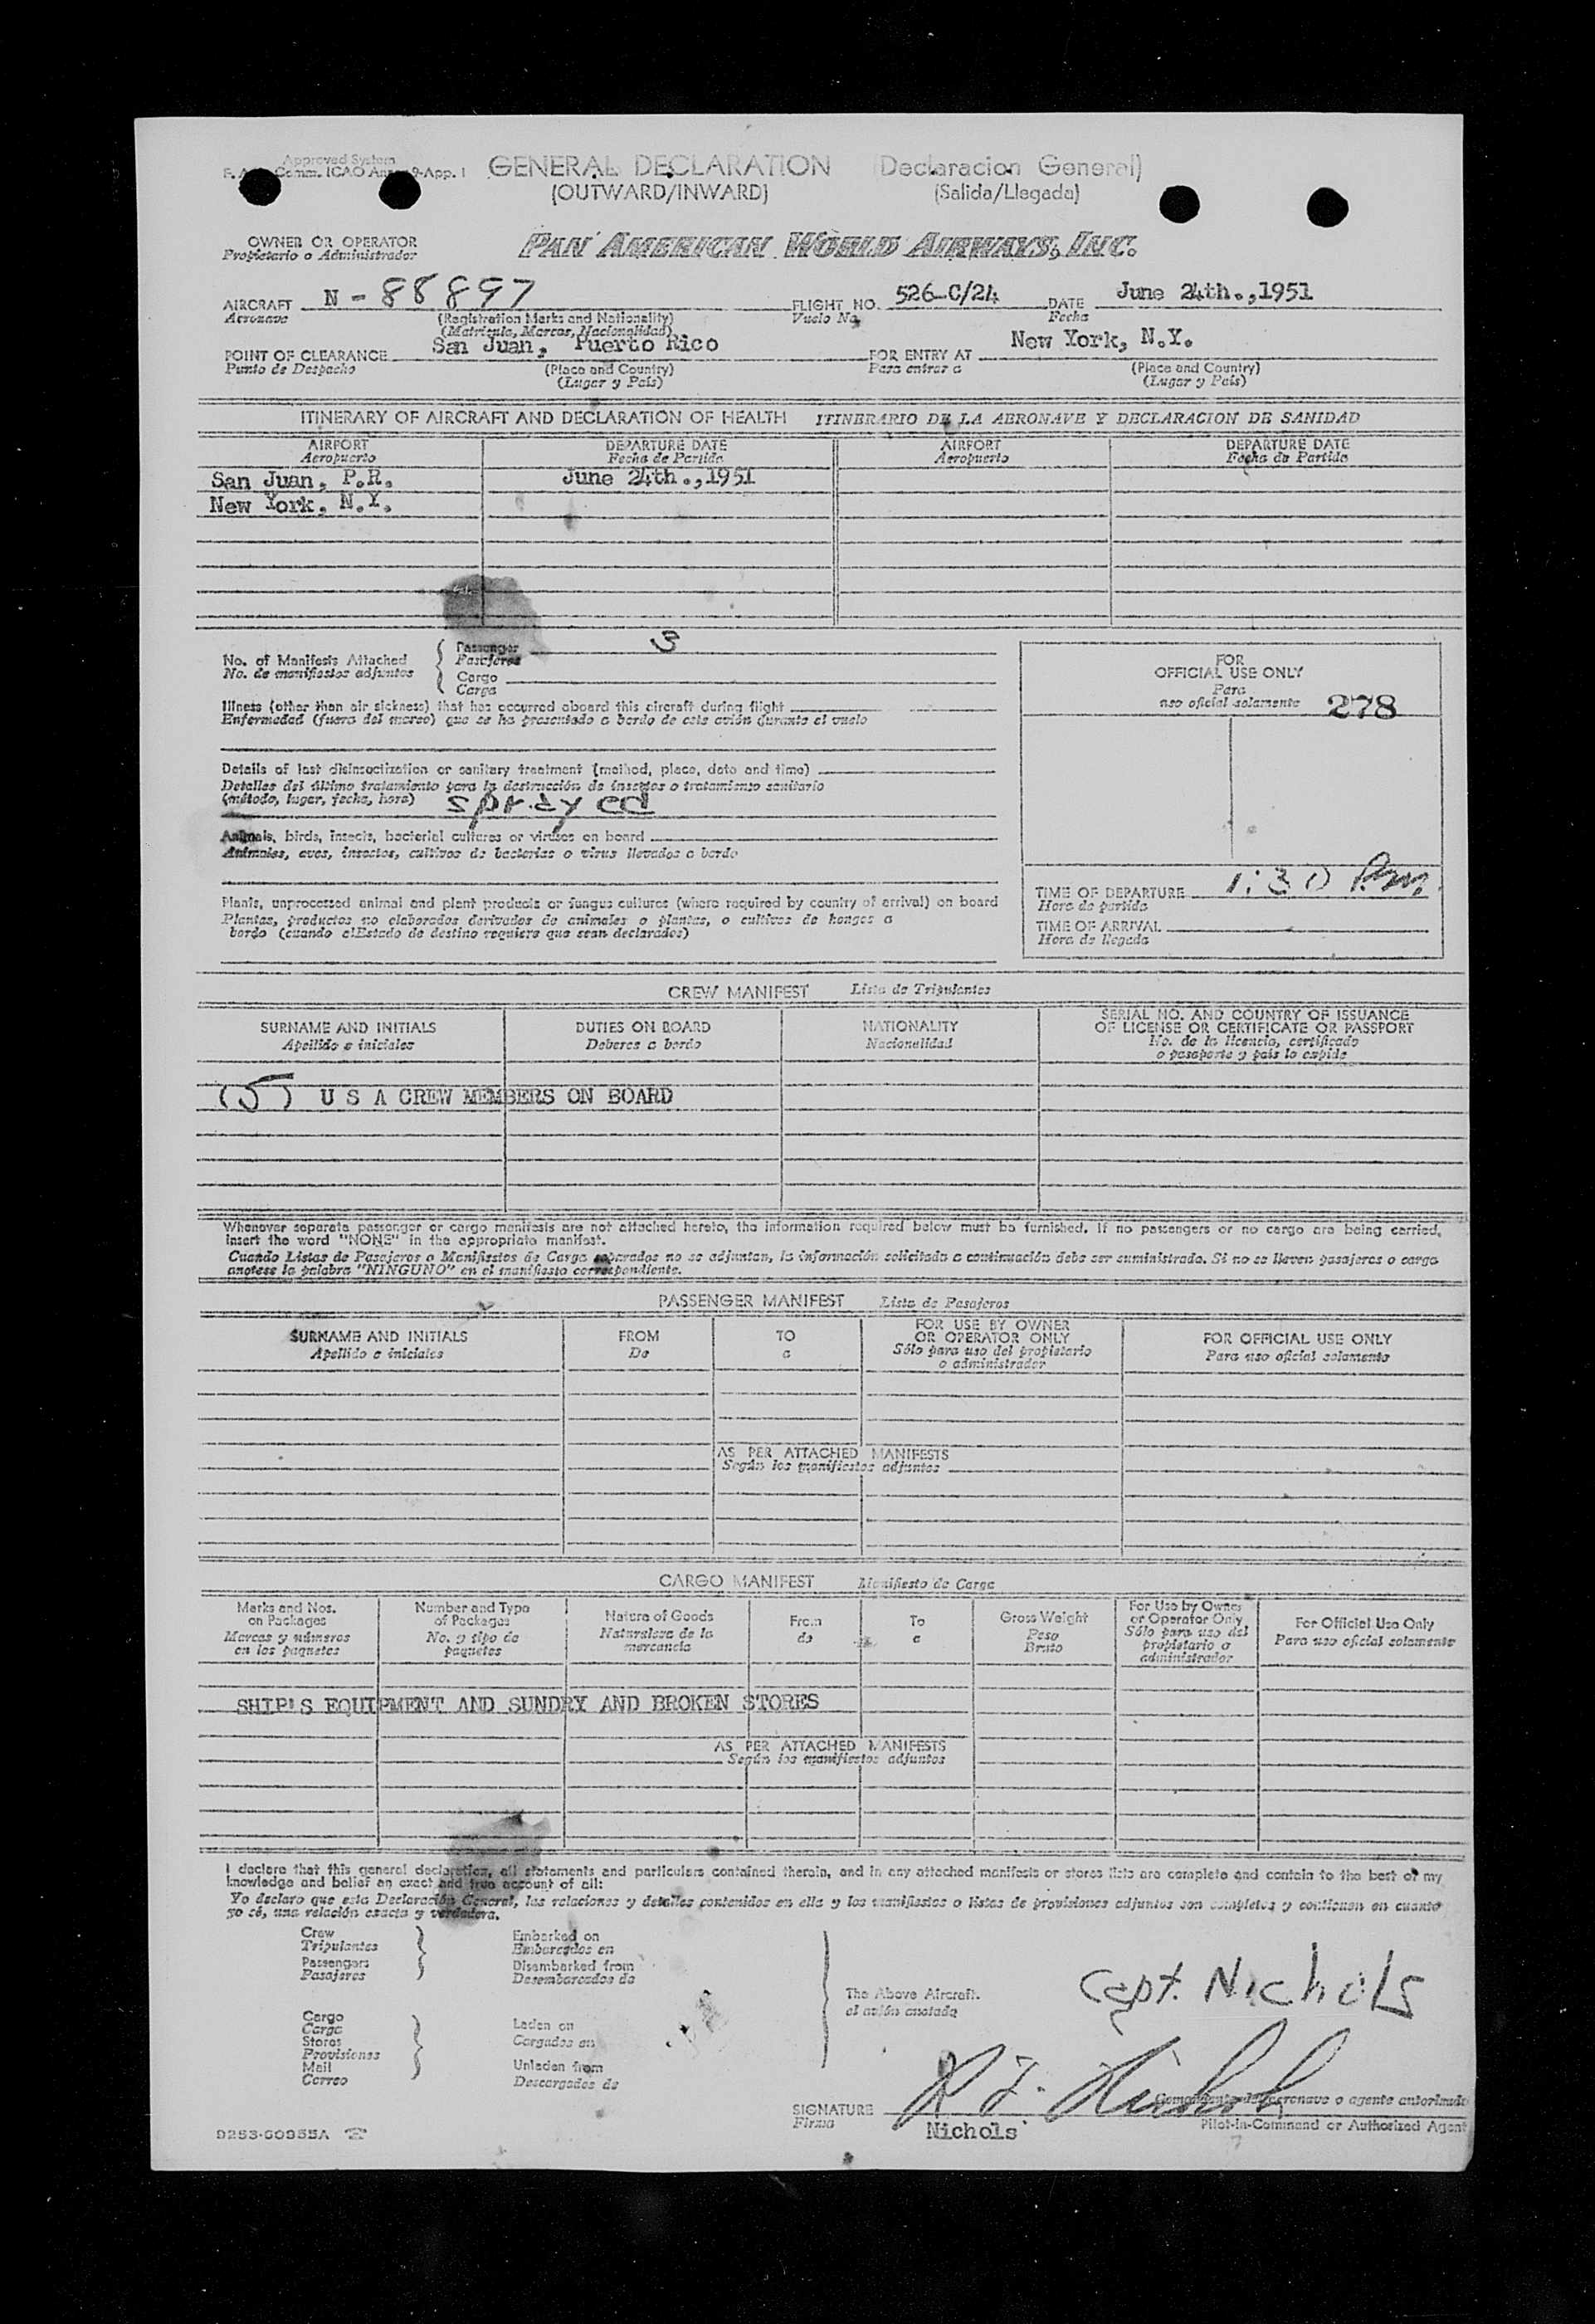 Approved System
Comm. ICAO Annex 9-App. I
GENERAL DECLARATION (Declaracion General)
(OUTWARD/INWARD) (Salida/Llegada)
OWNER OR OPERATOR
Propietario o Administrador
PAN AMERICAN WORLD AIRWAYS, INC.
AIRCRAFT N-88897 FLIGHT NO. 526-C/24 DATE June 24th.,1951
Aeronave (Registration Marks and Nationality) Vuelo No. Fecha
(Matricula, Marcas, Nacionalidad)
POINT OF CLEARANCE San Juan, Puerto Rico FOR ENTRY AT New York, N.Y.
Punto de Despacho (Place and Country) Para entrar a (Place and Country)
(Lugar y País) (Lugar y País)
ITINERARY OF AIRCRAFT AND DECLARATION OF HEALTH ITINERARIO DE LA AERONAVE Y DECLARACION DE SANIDAD
AIRPORT DEPARTURE DATE AIRPORT DEPARTURE DATE
Aeropuerto Fecha de Partida Aeropuerto Fecha de Partida
San Juan, P.R. June 24th.,1951
New York, N.Y.
No. of Manifests Attached
No. de manifiestos adjuntos
Passenger 3
Pasajeros
Cargo
Carga
Illness (other than air sickness) that has occurred aboard this aircraft during flight
Enfermedad (fuera del mareo) que se ha presentado a bordo de este avión durante el vuelo
Details of last disinsectization or sanitary treatment (method, place, date and time)
Detalles del último tratamiento para la destrucción de insectos o tratamiento sanitario
(método, lugar, fecha, hora) sprayed
Animals, birds, insects, bacterial cultures or viruses on board
Animales, aves, insectos, cultivos de bacterias o virus llevados a bordo
Plants, unprocessed animal and plant products or fungus cultures (where required by country of arrival) on board
Plantas, productos no elaborados derivados de animales o plantas, o cultivos de hongos a
bordo (cuando el Estado de destino requiere que sean declarados)
FOR
OFFICIAL USE ONLY
Para
uso oficial solamente 278
TIME OF DEPARTURE 1:30 P.m.
Hora de partida
TIME OF ARRIVAL
Hora de llegada
CREW MANIFEST Lista de Tripulantes
SURNAME AND INITIALS DUTIES ON BOARD NATIONALITY SERIAL NO. AND COUNTRY OF ISSUANCE
OF LICENSE OR CERTIFICATE OR PASSPORT
Apellido e iniciales Deberes a bordo Nacionalidad No. de la licencia, certificado
o pasaporte y país lo expide
(5) U S A CREW MEMBERS ON BOARD
Whenever separate passenger or cargo manifests are not attached hereto, the information required below must be furnished. If no passengers or no cargo are being carried,
insert the word "NONE" in the appropriate manifest.
Cuando Listas de Pasajeros o Manifiestos de Carga separados no se adjuntan, la información solicitada a continuación debe ser suministrada. Si no se lleven pasajeros o carga
anotese la palabra "NINGUNO" en el manifiesto correspondiente.
PASSENGER MANIFEST Lista de Pasajeros
SURNAME AND INITIALS FROM TO FOR USE BY OWNER
OR OPERATOR ONLY FOR OFFICIAL USE ONLY
Apellido e iniciales De a Sólo para uso del propietario
o administrador Para uso oficial solamente
AS PER ATTACHED MANIFESTS
Según los manifiestos adjuntos
CARGO MANIFEST Manifiesto de Carga
Marks and Nos.
on Packages
Marcas y números
en los paquetes
Number and Type
of Packages
No. y tipo de
paquetes
Nature of Goods
Naturaleza de la
mercancía
From
de
To
a
Gross Weight
Peso
Bruto
For Use by Owner
or Operator Only
Sólo para uso del
propietario o
administrador
For Official Use Only
Para uso oficial solamente
SHIP'S EQUIPMENT AND SUNDRY AND BROKEN STORES
AS PER ATTACHED MANIFESTS
Según los manifiestos adjuntos
I declare that this general declaration, all statements and particulars contained therein, and in any attached manifests or stores lists are complete and contain to the best of my
knowledge and belief an exact and true account of all:
Yo declaro que esta Declaración General, las relaciones y detalles contenidos en ella y los manifiestos o listas de provisiones adjuntos son completos y contienen en cuanto
yo cé, una relación exacta y verdadera.
Crew
Tripulantes
Passengers
Pasajeros
Embarked on
Embarcados en
Disembarked from
Desembarcados de
Cargo
Carga
Stores
Provisiones
Mail
Correo
Laden on
Cargados en
Unladen from
Descargados de
The Above Aircraft.
el avión anotado
Capt. Nichols
SIGNATURE
Firma
Nichols
aeronave o agente autorizado
Pilot-in-Command or Authorized Agent
9253-60955A